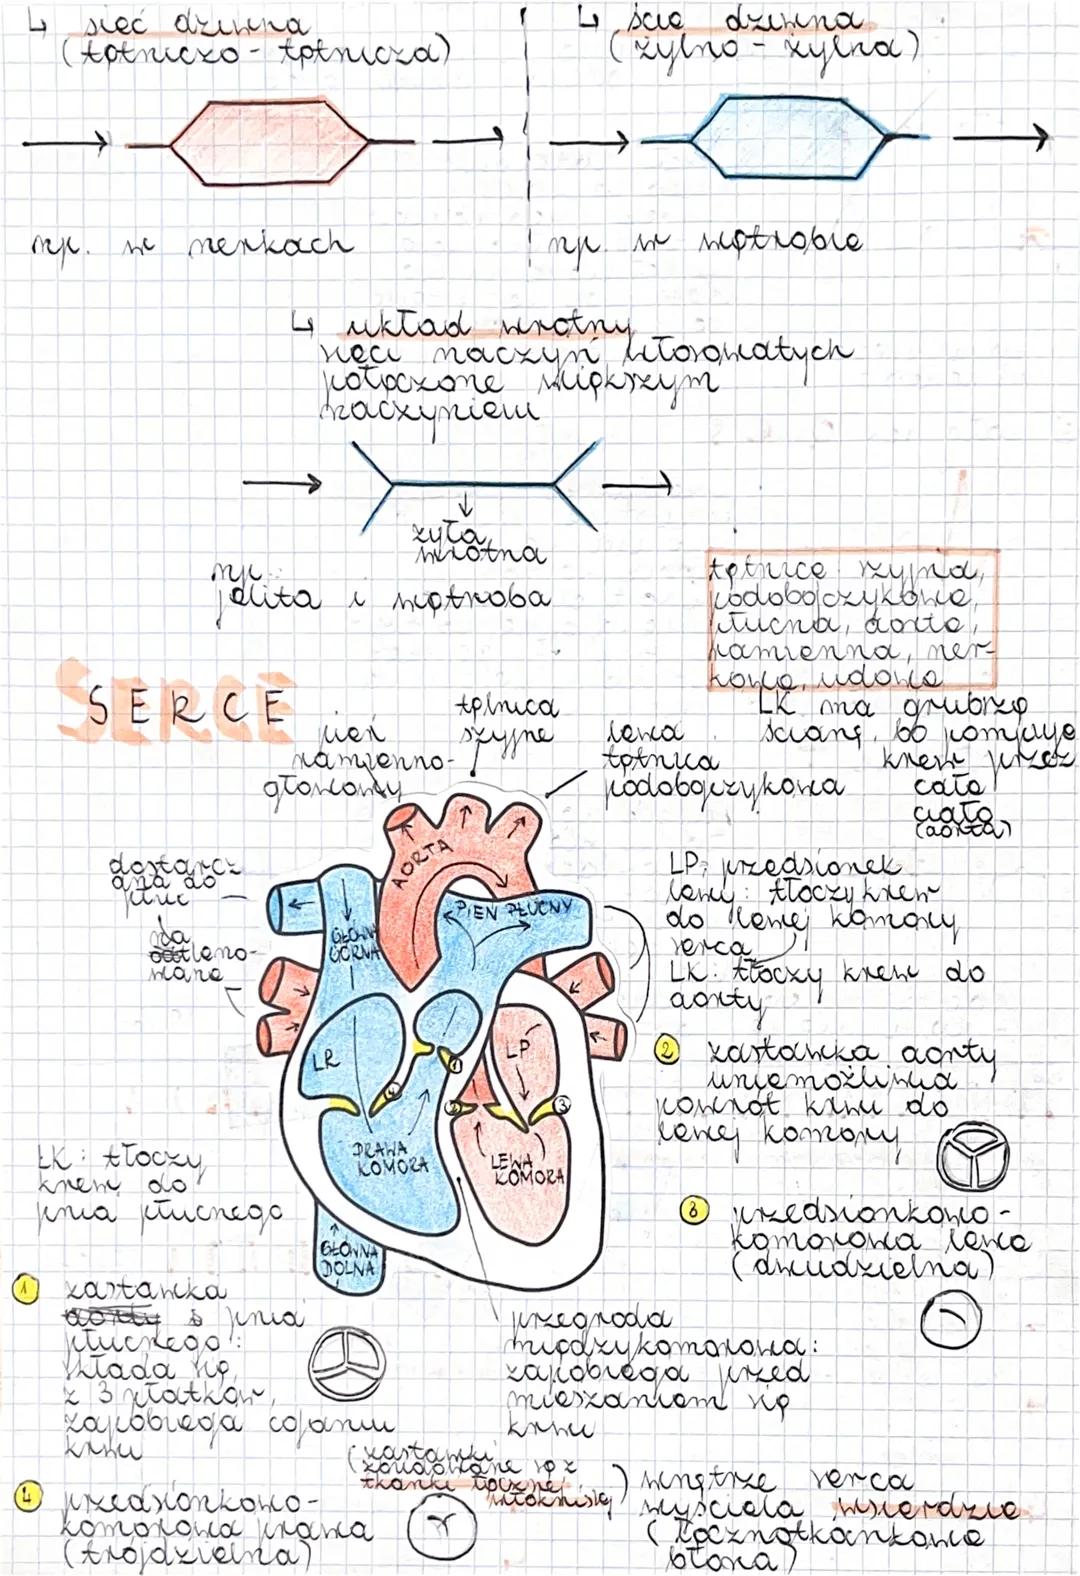 ↳ sieć dziwna
(tętniczo - tętnicza)
↳ sieć dziwna
(żylno - żylna)
np. w nerkach
np. w wątrobie
↳ układ wrotny
sieci naczyń włosowatych
połączone większym
naczyniem
żyła
wrotna
np.
jelita i wątroba
tętnice szyjna,
podobojczykowa,
płucna, aorta,
ramienna, ner-
kowa, udowa
SERCE
pień
ramienno-
głowowy
tętnica
szyjne
lewa
tętnica
podobojczykowa
LK ma grubszą
ścianę, bo pompuje
krew przez
całe
ciało
(aorta)
dostarcz
ana do
płuc
na
odtleno-
wane
AORTA
PIEŃ PŁUCNY
GŁÓWNA
GÓRNA
LP: przedsionek
lewy: tłoczy krew
do lewej komory
serca
LK: tłoczy krew do
aorty
LR
LP
1
4
2
3
PRAWA
KOMORA
LEWA
KOMORA
GŁÓWNA
DOLNA
2 zastawka aorty
uniemożliwia
powrót krwi do
lewej komory
ŁK: tłoczy
krew do
pnia płucnego
3 przedsionkowo-
komorowa lewa
(dwudzielna)
1 zastawka
aorty s pnia
płucnego:
składa się
z 3 płatków,
zapobiega cofaniu
krwi
przegroda
międzykomorowa:
zapobiega przed
mieszaniem się
krwi
(zastawki
zbudowane są z
tkanki łącznej
włóknistej)
4 przedsionkowo-
komorowa prawa
(trójdzielna)
wnętrze serca
wyściela wsierdzie
(łącznotkankowa
błona)